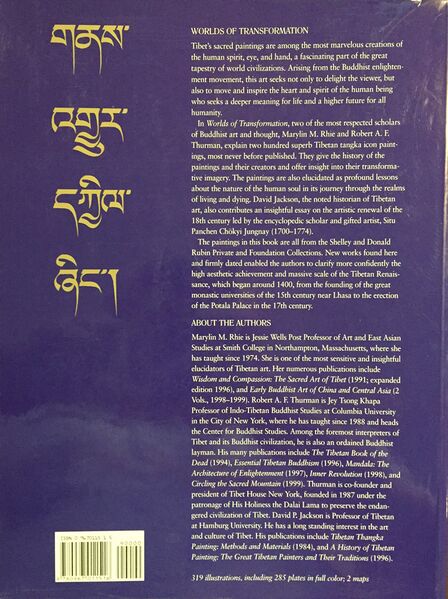 གནས་
འགྱུར་
དཀྱིལ་
ཞིང་།
WORLDS OF TRANSFORMATION
Tibet's sacred paintings are among the most marvelous creations of
the human spirit, eye, and hand, a fascinating part of the great
tapestry of world civilizations. Arising from the Buddhist enlighten-
ment movement, this art seeks not only to delight the viewer, but
also to move and inspire the heart and spirit of the human being
who seeks a deeper meaning for life and a higher future for all
humanity.
In Worlds of Transformation, two of the most respected scholars
of Buddhist art and thought, Marylin M. Rhie and Robert A. F.
Thurman, explain two hundred superb Tibetan tangka icon paint-
ings, most never before published. They give the history of the
paintings and their creators and offer insight into their transforma-
tive imagery. The paintings are also elucidated as profound lessons
about the nature of the human soul in its journey through the realms
of living and dying. David Jackson, the noted historian of Tibetan
art, also contributes an insightful essay on the artistic renewal of the
18th century led by the encyclopedic scholar and gifted artist, Situ
Panchen Chökyi Jungnay (1700–1774).
The paintings in this book are all from the Shelley and Donald
Rubin Private and Foundation Collections. New works found here
and firmly dated enabled the authors to clarify more confidently the
high aesthetic achievement and massive scale of the Tibetan Renais-
sance, which began around 1400, from the founding of the great
monastic universities of the 15th century near Lhasa to the erection
of the Potala Palace in the 17th century.
ABOUT THE AUTHORS
Marylin M. Rhie is Jessie Wells Post Professor of Art and East Asian
Studies at Smith College in Northampton, Massachusetts, where she
has taught since 1974. She is one of the most sensitive and insightful
elucidators of Tibetan art. Her numerous publications include
Wisdom and Compassion: The Sacred Art of Tibet (1991; expanded
edition 1996), and Early Buddhist Art of China and Central Asia (2
Vols., 1998–1999). Robert A. F. Thurman is Jey Tsong Khapa
Professor of Indo-Tibetan Buddhist Studies at Columbia University
in the City of New York, where he has taught since 1988 and heads
the Center for Buddhist Studies. Among the foremost interpreters of
Tibet and its Buddhist civilization, he is also an ordained Buddhist
layman. His many publications include The Tibetan Book of the
Dead (1994), Essential Tibetan Buddhism (1996), Mandala: The
Architecture of Enlightenment (1997), Inner Revolution (1998), and
Circling the Sacred Mountain (1999). Thurman is co-founder and
president of Tibet House New York, founded in 1987 under the
patronage of His Holiness the Dalai Lama to preserve the endan-
gered civilization of Tibet. David P. Jackson is Professor of Tibetan
at Hamburg University. He has a long standing interest in the art
and culture of Tibet. His publications include Tibetan Thangka
Painting: Methods and Materials (1984), and A History of Tibetan
Painting: The Great Tibetan Painters and Their Traditions (1996).
319 illustrations, including 285 plates in full color; 2 maps
90000